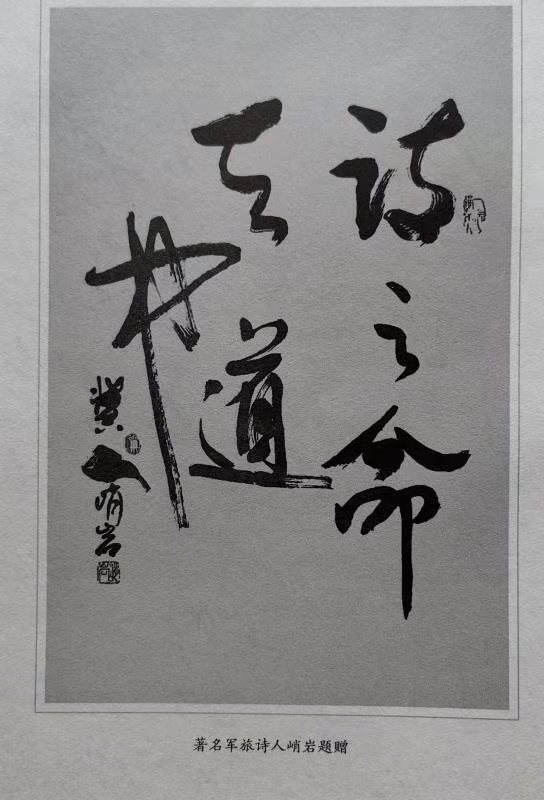 诗之命
在道
冀人峭岩
著名军旅诗人峭岩题赠